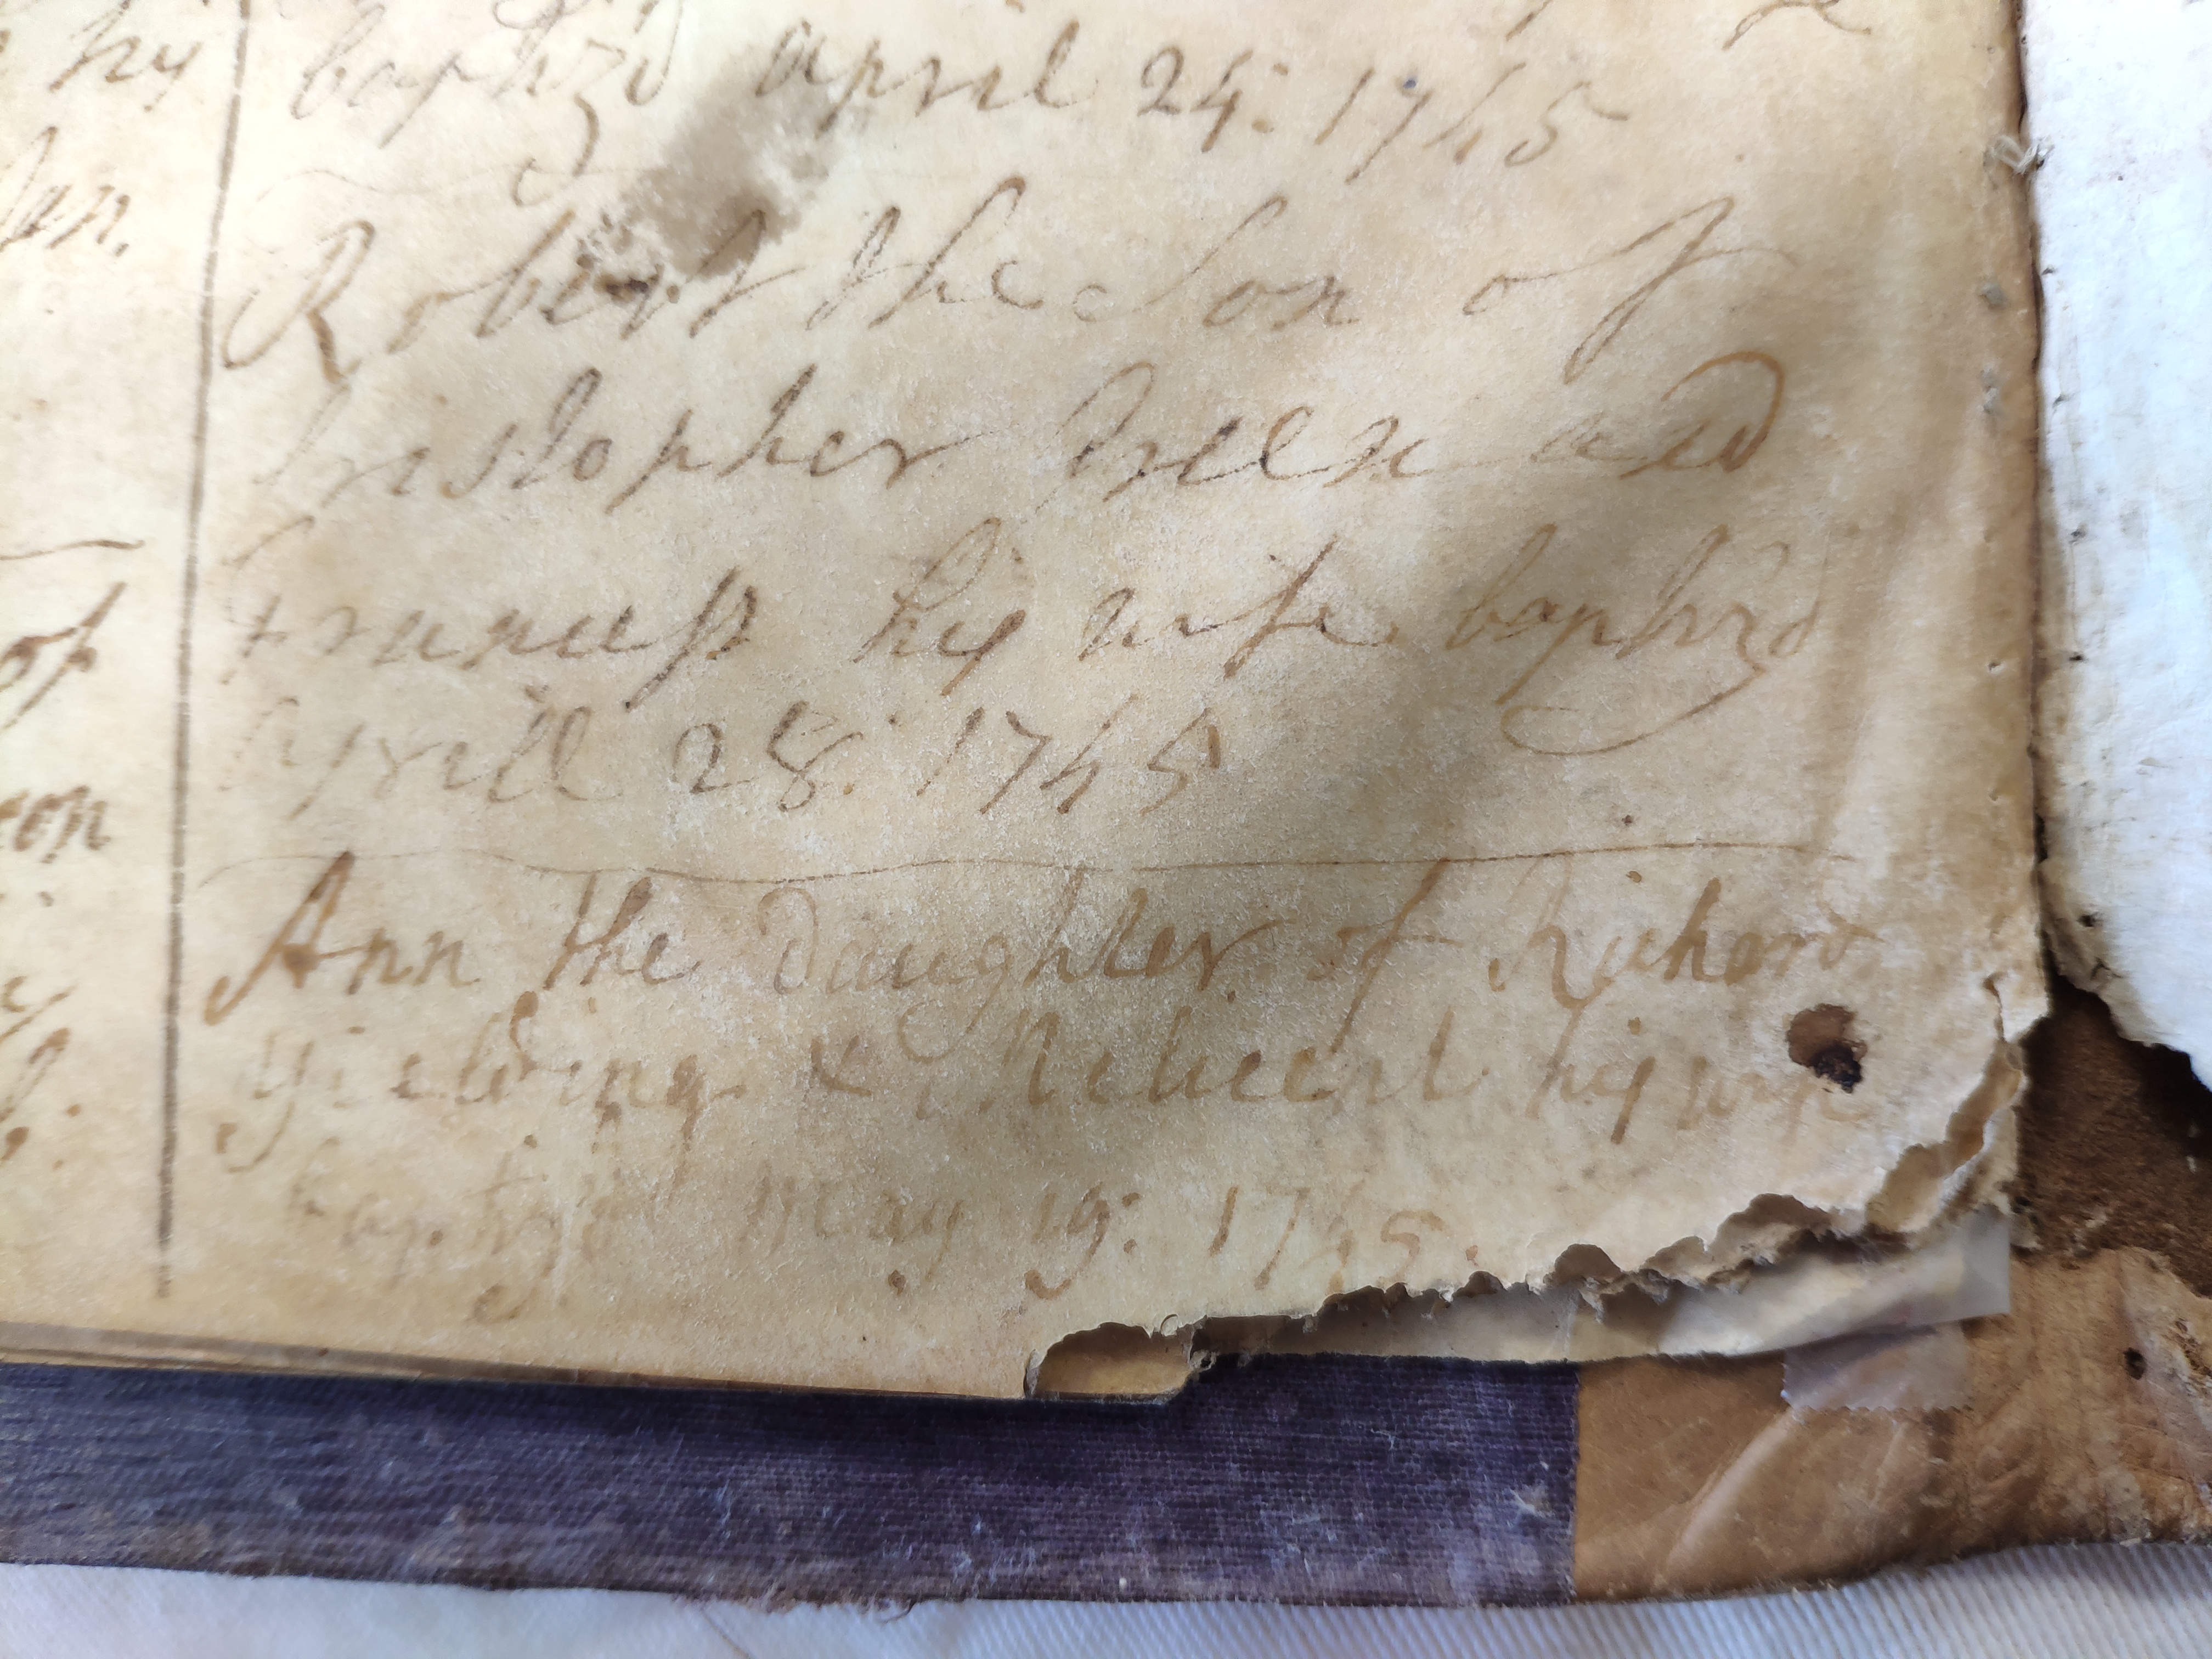 hy
Jan.
of
baptiz'd april 24: 1745
Robert the Son of
Christopher Green and
Frances hys wife baptiz'd
Aprill 28: 1745
Ann the Daughter of Richard
Yielding & his wife
baptiz'd May 19: 1745.